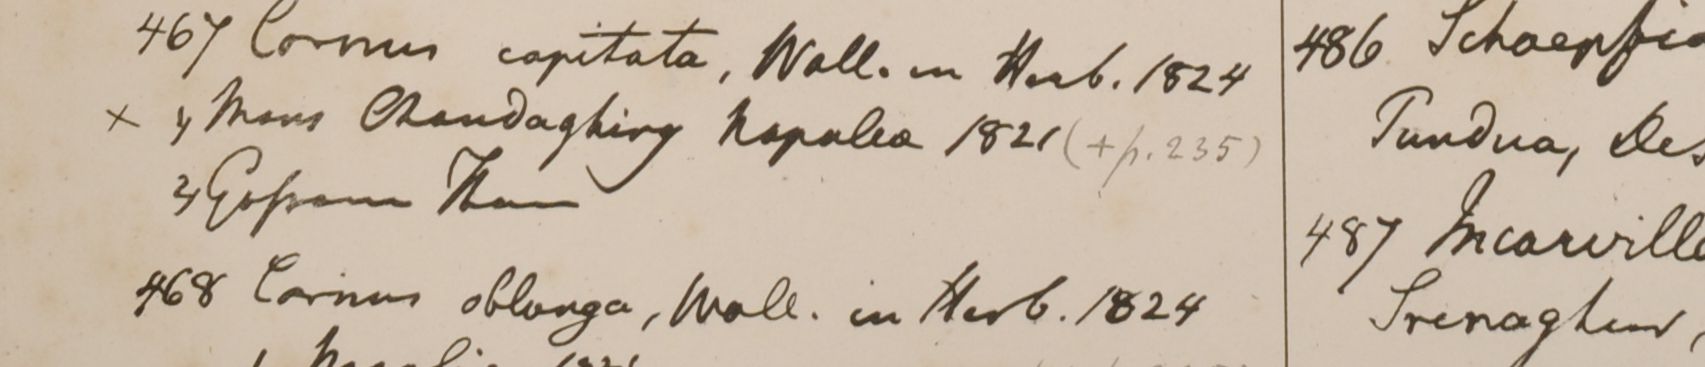 467 Cornus capitata, Wall. in Herb. 1824
x 1/ Mons Chandaghiry Napalea 1821 (+p. 235)
2/ Gossam Than
468 Cornus oblonga, Wall. in Herb. 1824
1821
486 Schoepfia
Tundua, Des
487 Incarville
Srenaghur,